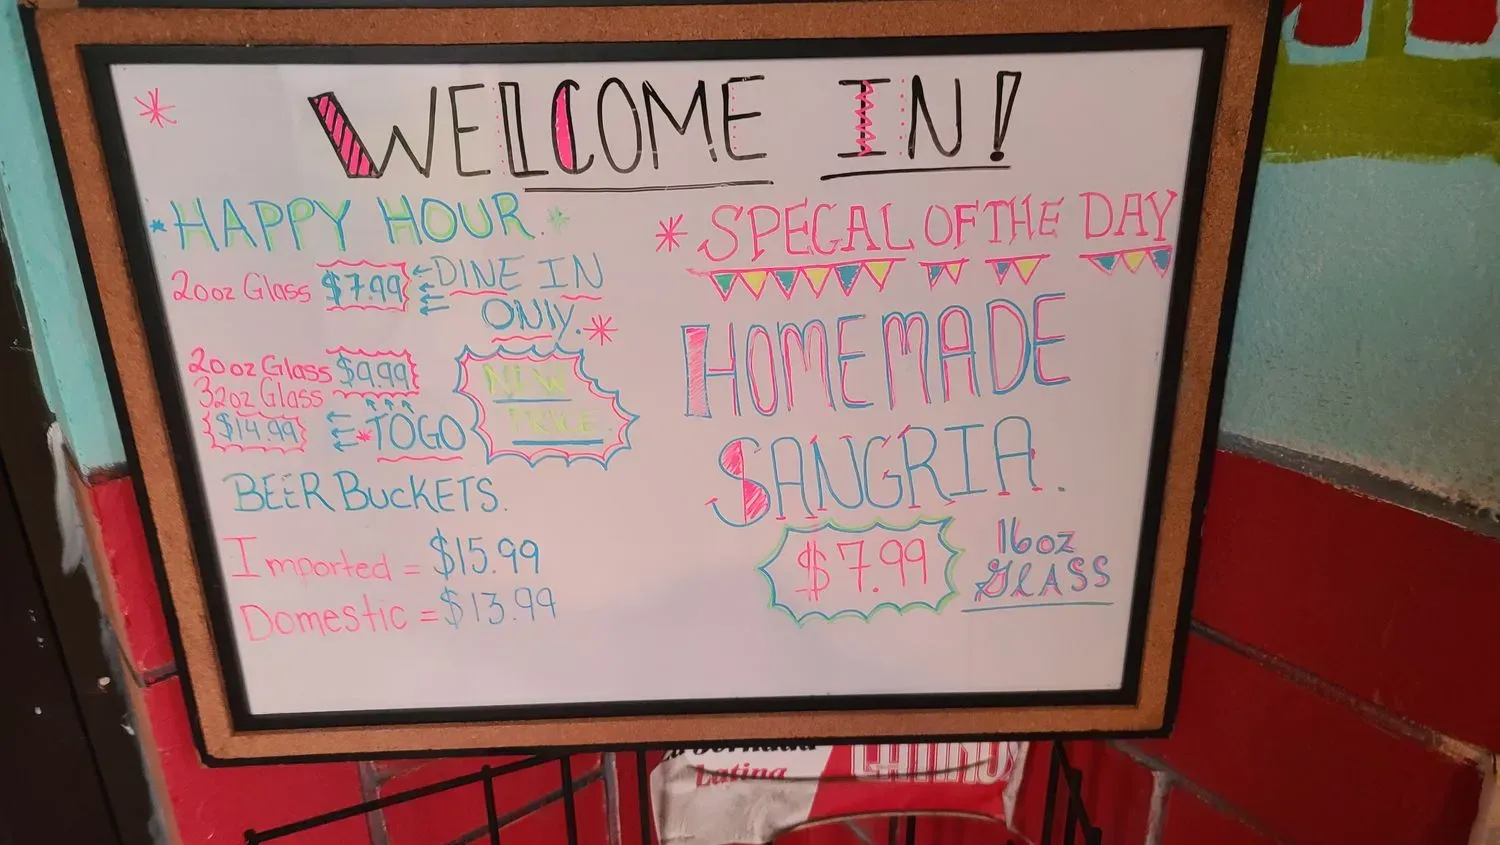 WELCOME IN!
HAPPY HOUR.
20oz Glass $7.99 DINE IN
ONLY.
20oz Glass $9.99
32oz Glass
$14.99 TOGO
NEW
PRICE.
BEER BUCKETS.
Imported = $15.99
Domestic = $13.99
SPECAL OF THE DAY
HOMEMADE
SANGRIA.
$7.99 16oz
GLASS
La Jornada
Latina
CAMINOS